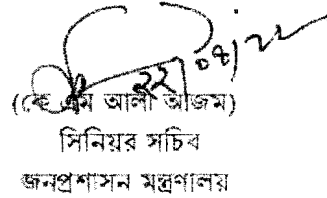 ২২/০৪/২২
(কে এম আলী আজম)
সিনিয়র সচিব
জনপ্রশাসন মন্ত্রণালয়